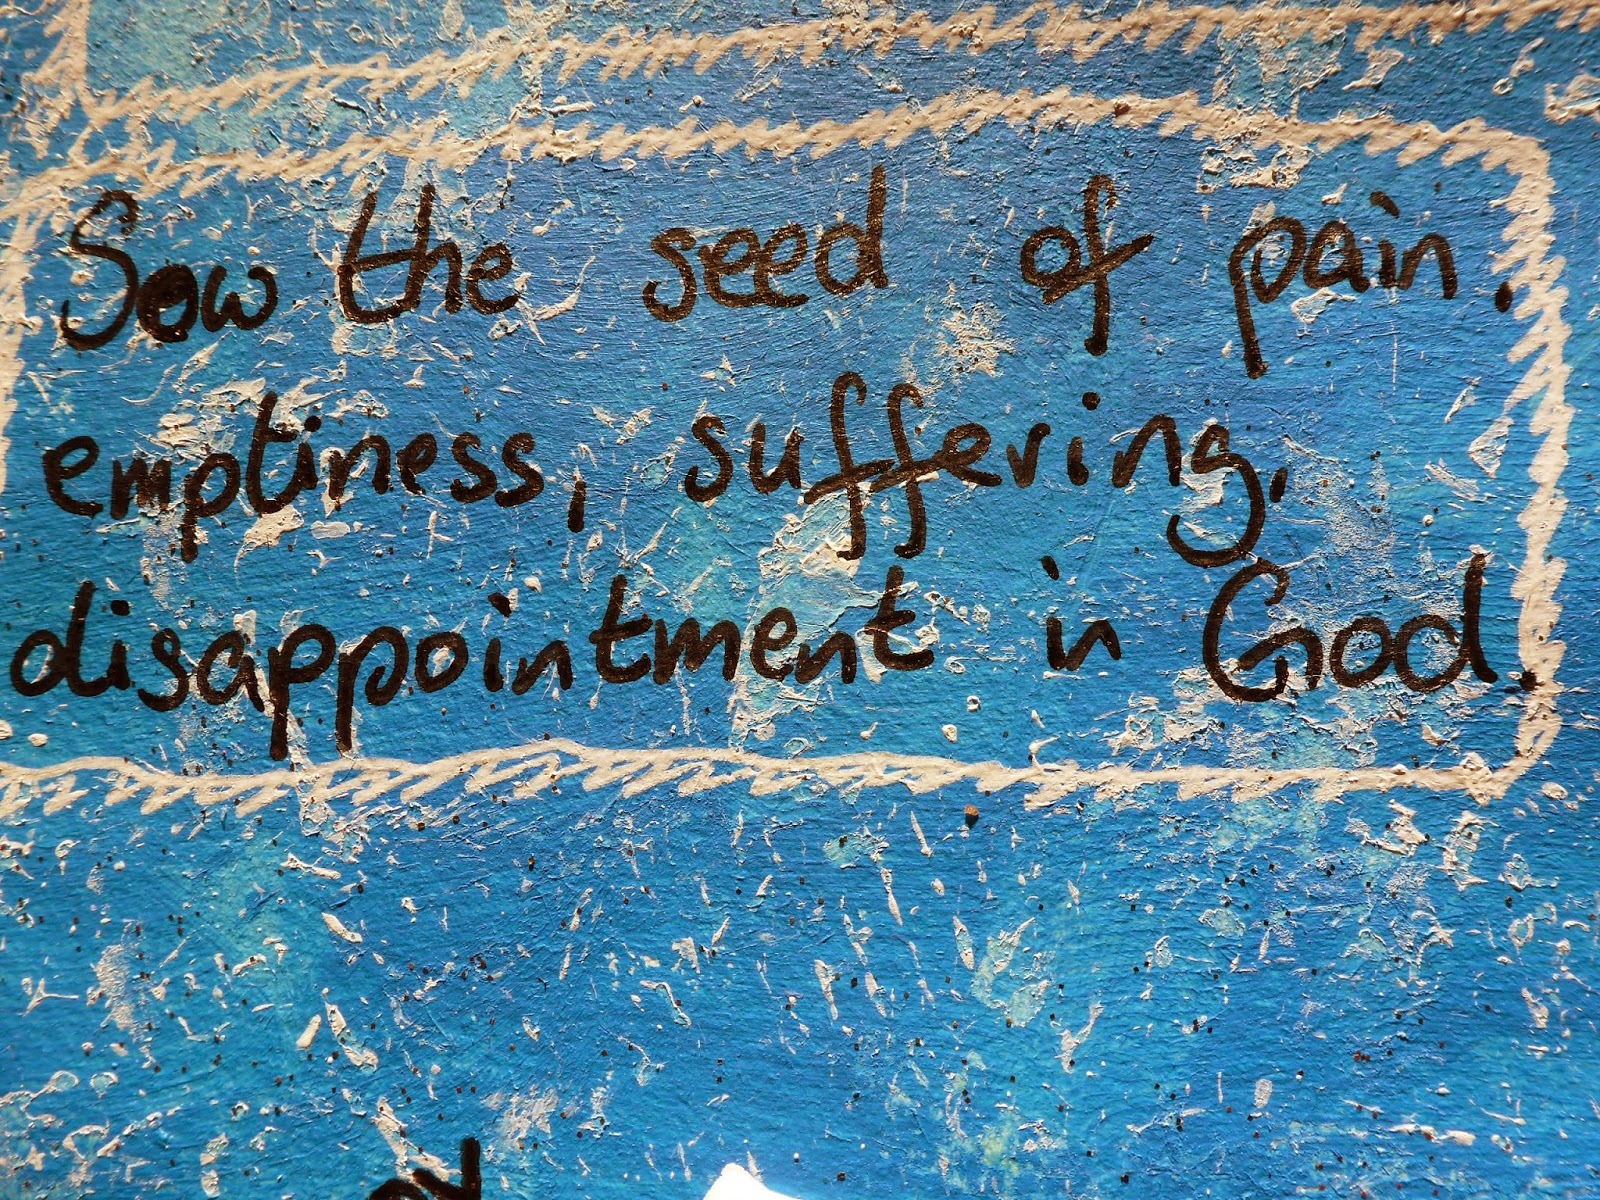 Sow the seed of pain.
emptiness, suffering,
disappointment in God.